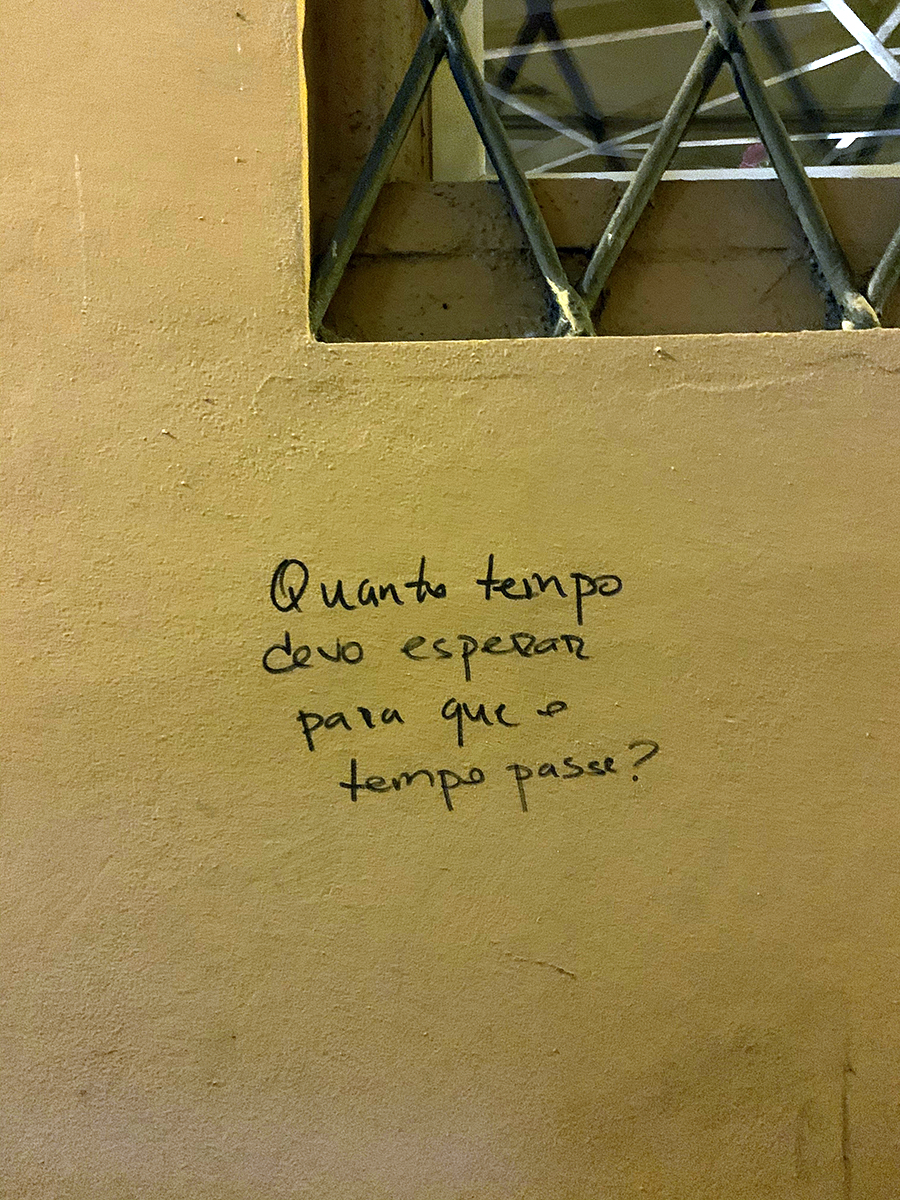 Quanto tempo
devo esperar
para que o
tempo passe?